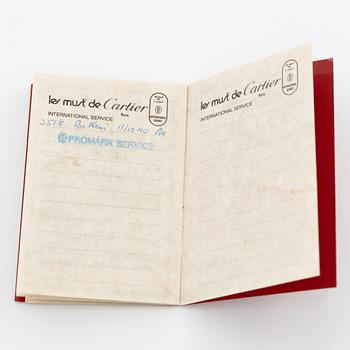 les must de Cartier
Paris
INTERNATIONAL SERVICE
3518
PROMARK SERVICE
les must de Cartier
Paris
INTERNATIONAL SERVICE